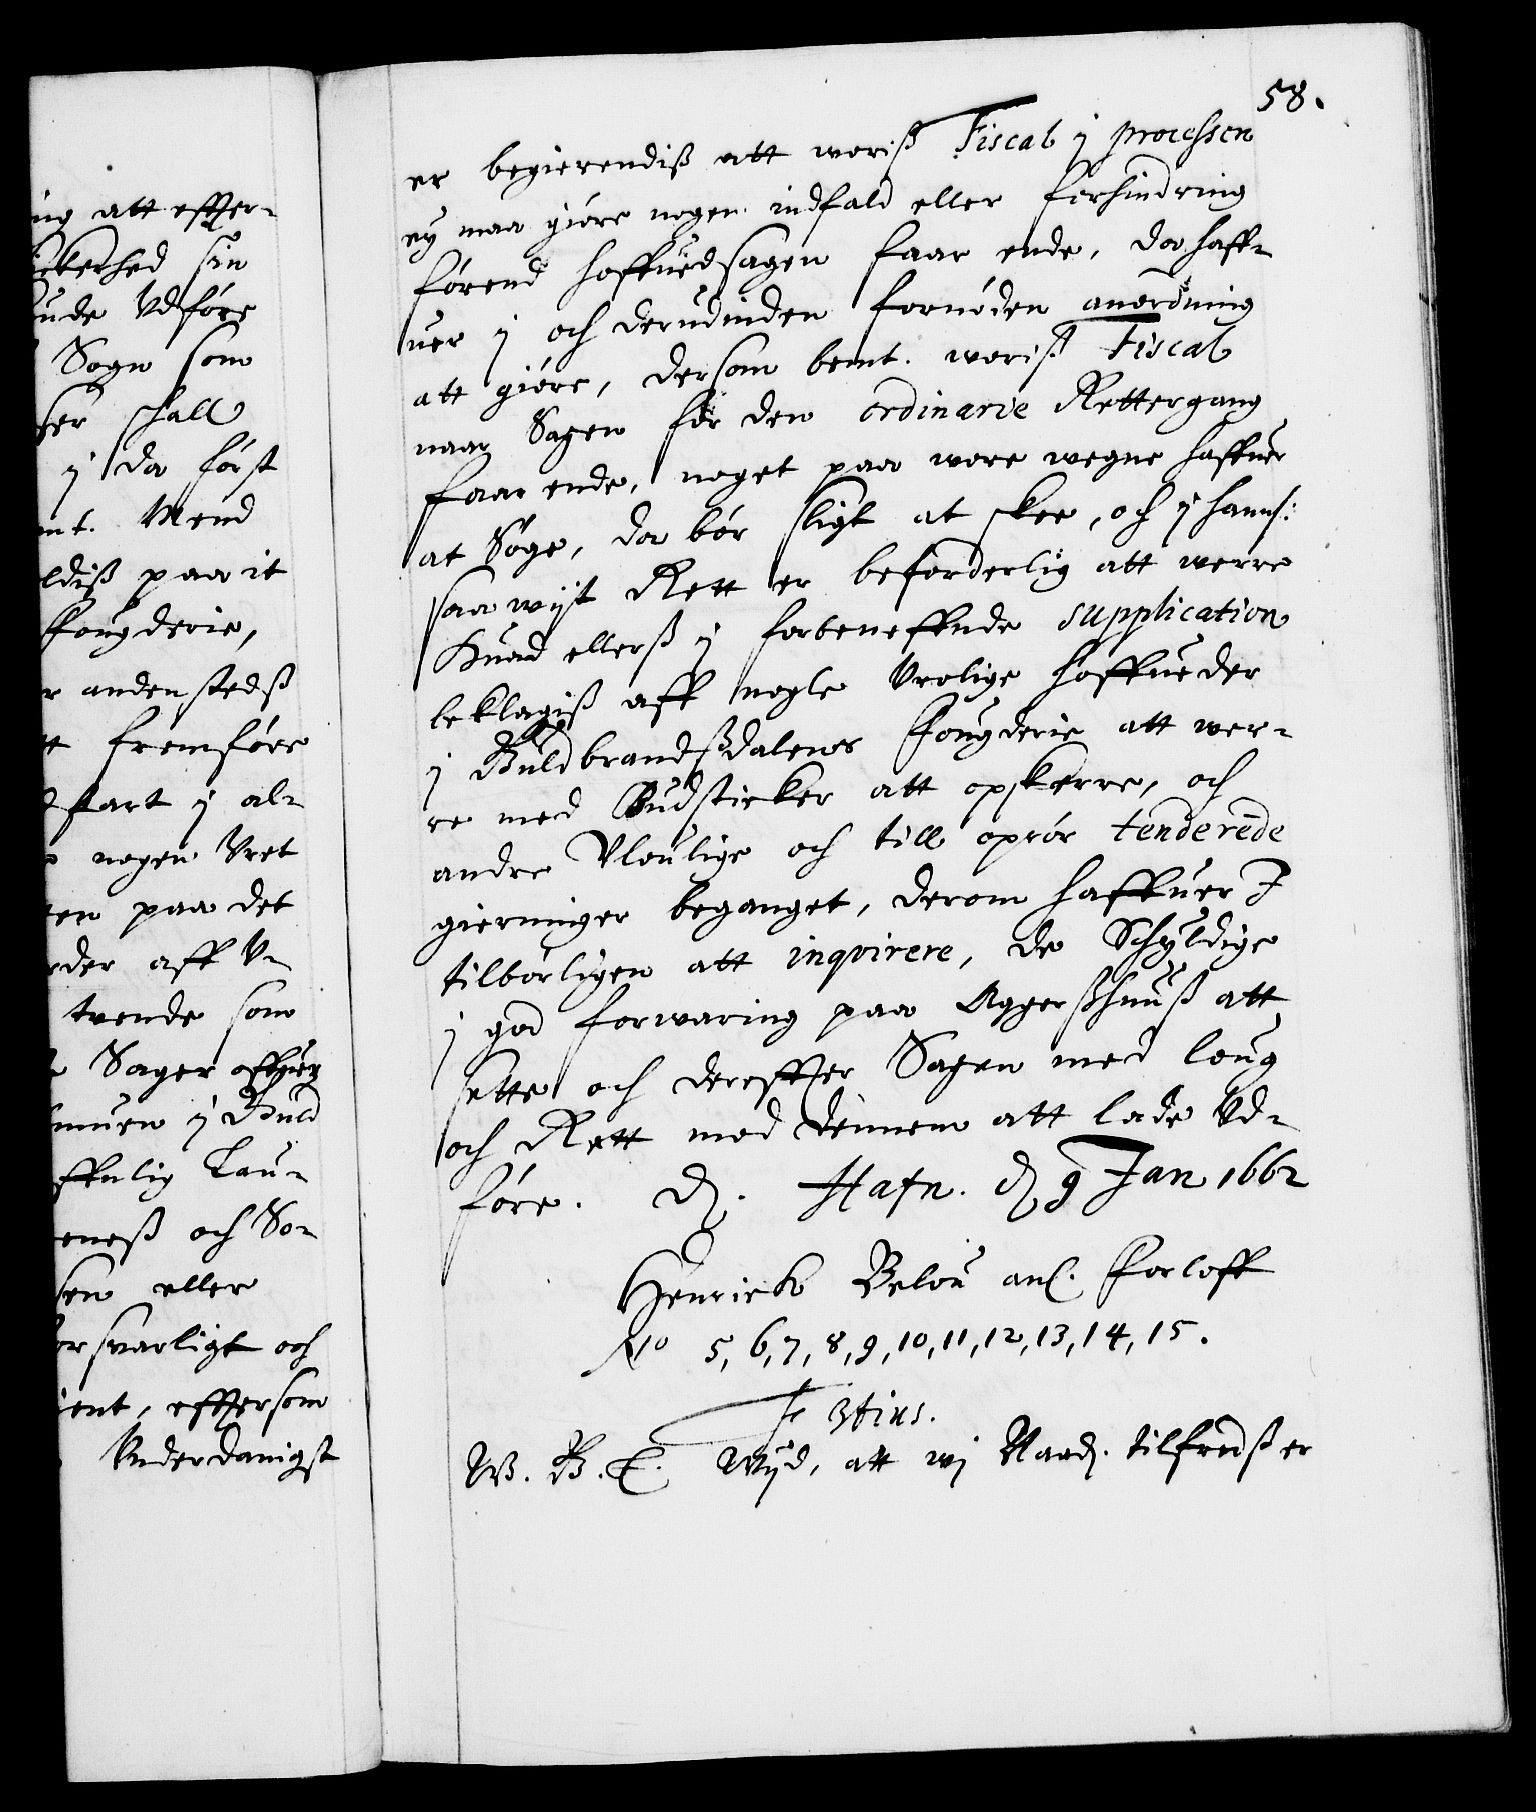 58.
er begierendiß att woriß Fiscal j processen
ey maa giøre nogen indfald eller forhindring
førend hoffuedsagen faar ende, da haff-
uer j och derudinden fornøden anordning
att giøre, dersom bemt. woriß Fiscal
naar Sagen før den ordinarie Rettergang
faar ende, noget paa wore wegne haffuer
at Søge, da bør sligt at skee, och j hannß:
saa wijt Rett er beforderlig att werre
Huad ellerß j forbeneffnde supplication
beklagiß aff nogle Vrolige hoffueder
j Guldbrandßdalens fougderie att wer-
re med Budsticker att opskerre, och
andre Vloulige och till oprør tenderede
gierninger beganget, derom haffuer I
tilbørligen att inqvirere, de Schyldige
j god forwaring paa Aggerßhuuß att
sette och dereffter Sagen med loug
och Rett mod dennem att lade Vd-
føre. D. Hafn. d 9 Jan 1662
Henrick Belou anl. Forloff
No 5, 6, 7, 8, 9, 10, 11, 12, 13, 14, 15.
F 3tius.
W. G. E. Wijd, att wj Naad. tilfredß er
ing att effter-
sin
unde Vdføre
Sogn som
ser schall
j da først
mt. Mend
ldiß paa it
fougderie,
r andenstedß
fremføre
fart j al-
nogen Vret
ten paa det
rder aff V-
tvende som
Sager offuer
j Guld
ffnlig Lau-
eneß och So-
sen eller
orsvarligt och
ient, efftersom
Vnderdanigst